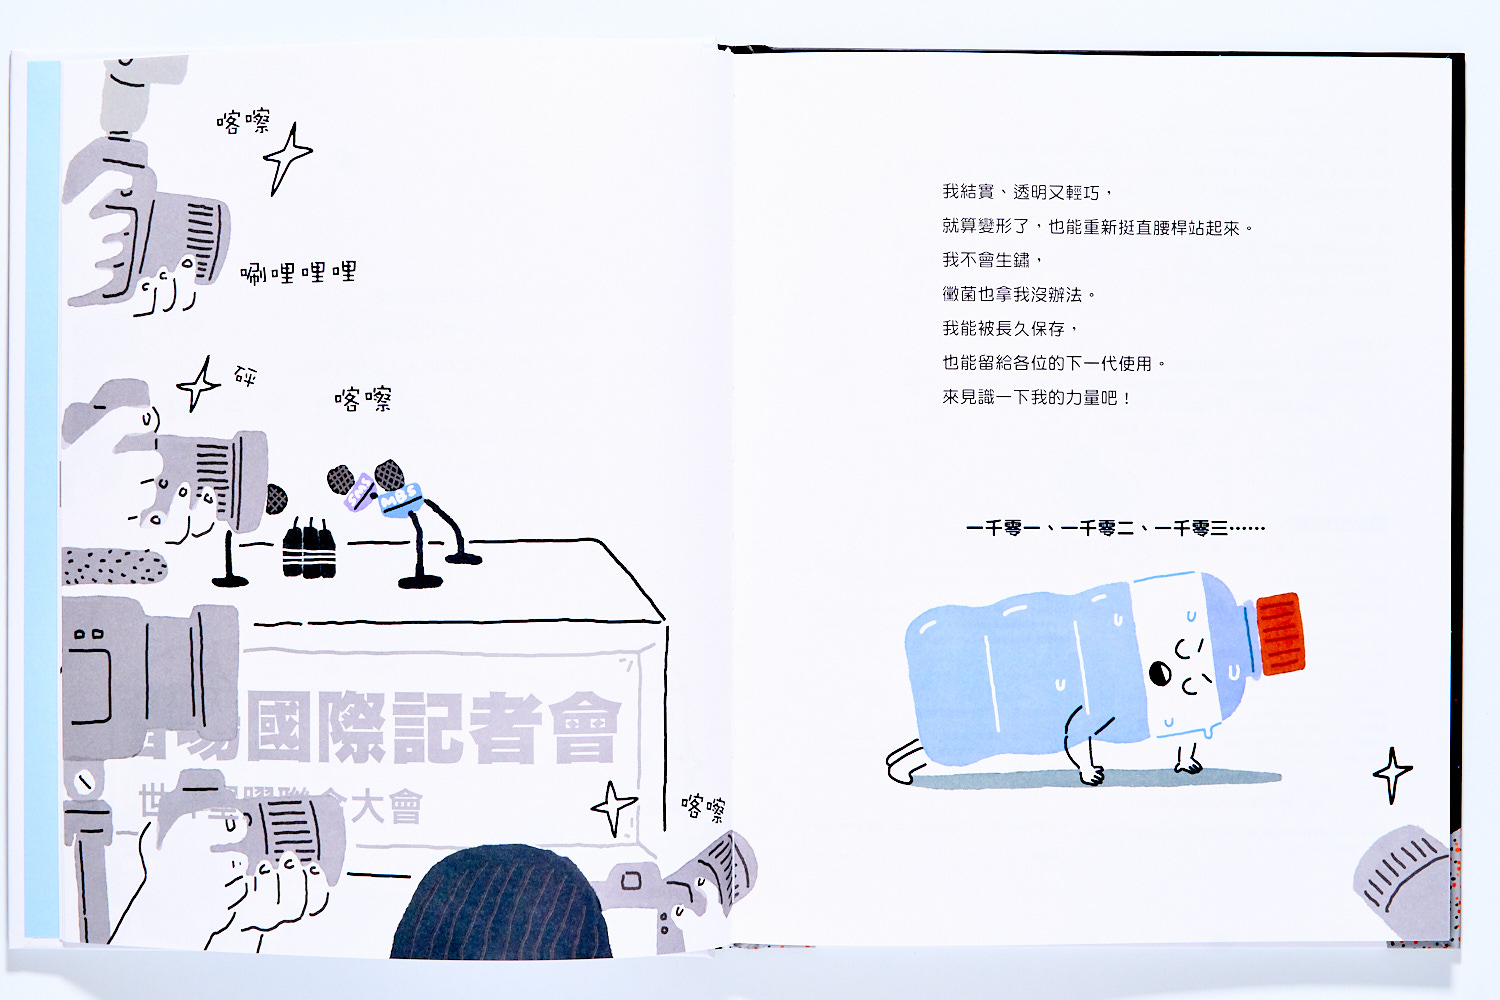 喀嚓
唰哩哩哩
砰
喀嚓
SMS
MBS
國際記者會
大會
喀嚓
我結實、透明又輕巧，
就算變形了，也能重新挺直腰桿站起來。
我不會生鏽，
黴菌也拿我沒辦法。
我能被長久保存，
也能留給各位的下一代使用。
來見識一下我的力量吧！
一千零一、一千零二、一千零三……